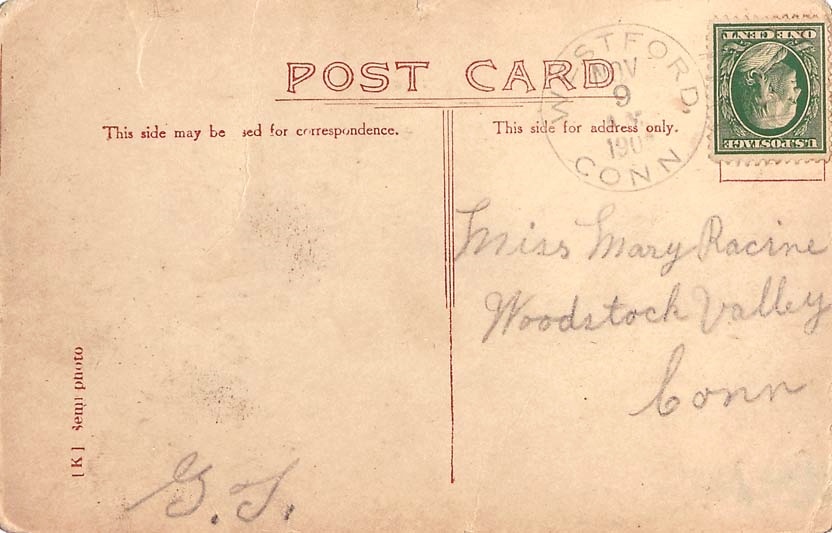 POST CARD
This side may be sed for correspondence.
This side for address only.
WESTFORD, CONN
NOV
9
190
ONE CENT
U.S. POSTAGE
Miss Mary Racine
Woodstock Valley
Conn
[K] Semi photo
G. T.